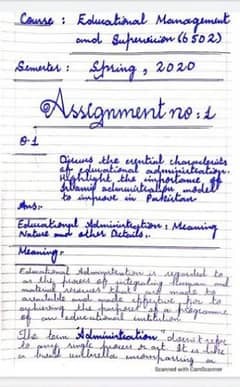 Course : Educational Management
and Supervision (6502)
Semester : Spring, 2020
Assignment no : 1
Q.1
Discuss the essential characteristics
of educational administration.
Highlight the importance of
Islamic administration model
to improve in Pakistan
Ans:-
Educational Administration : Meaning
Nature and other Details :.
Meaning:-
Educational Administration is regarded to
as the process of integrating human and
material resources that are made to
available and made effective for to
achieving the purpose of a programme
of an educational institution.
The term "Administration" doesn't refer
to any single process or act. It is like
a broad umbrella encompassing a
Scanned with CamScanner